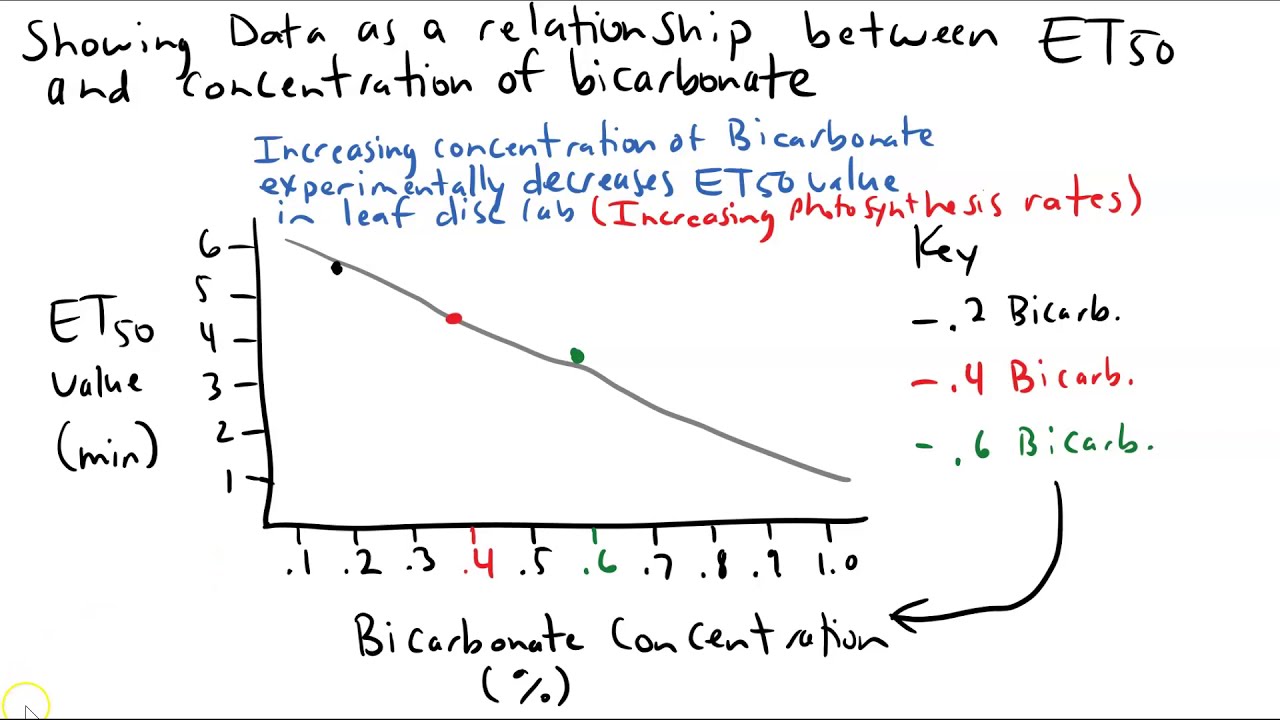 Showing Data as a relationship between ET50
and concentration of bicarbonate
Increasing concentration of Bicarbonate
experimentally decreases ET50 value
in leaf disc lab (Increasing photosynthesis rates)
Key
- .2 Bicarb.
- .4 Bicarb.
- .6 Bicarb.
ET50
value
(min)
6
5
4
3
2
1
.1 .2 .3 .4 .5 .6 .7 .8 .9 1.0
Bicarbonate Concentration
(%)